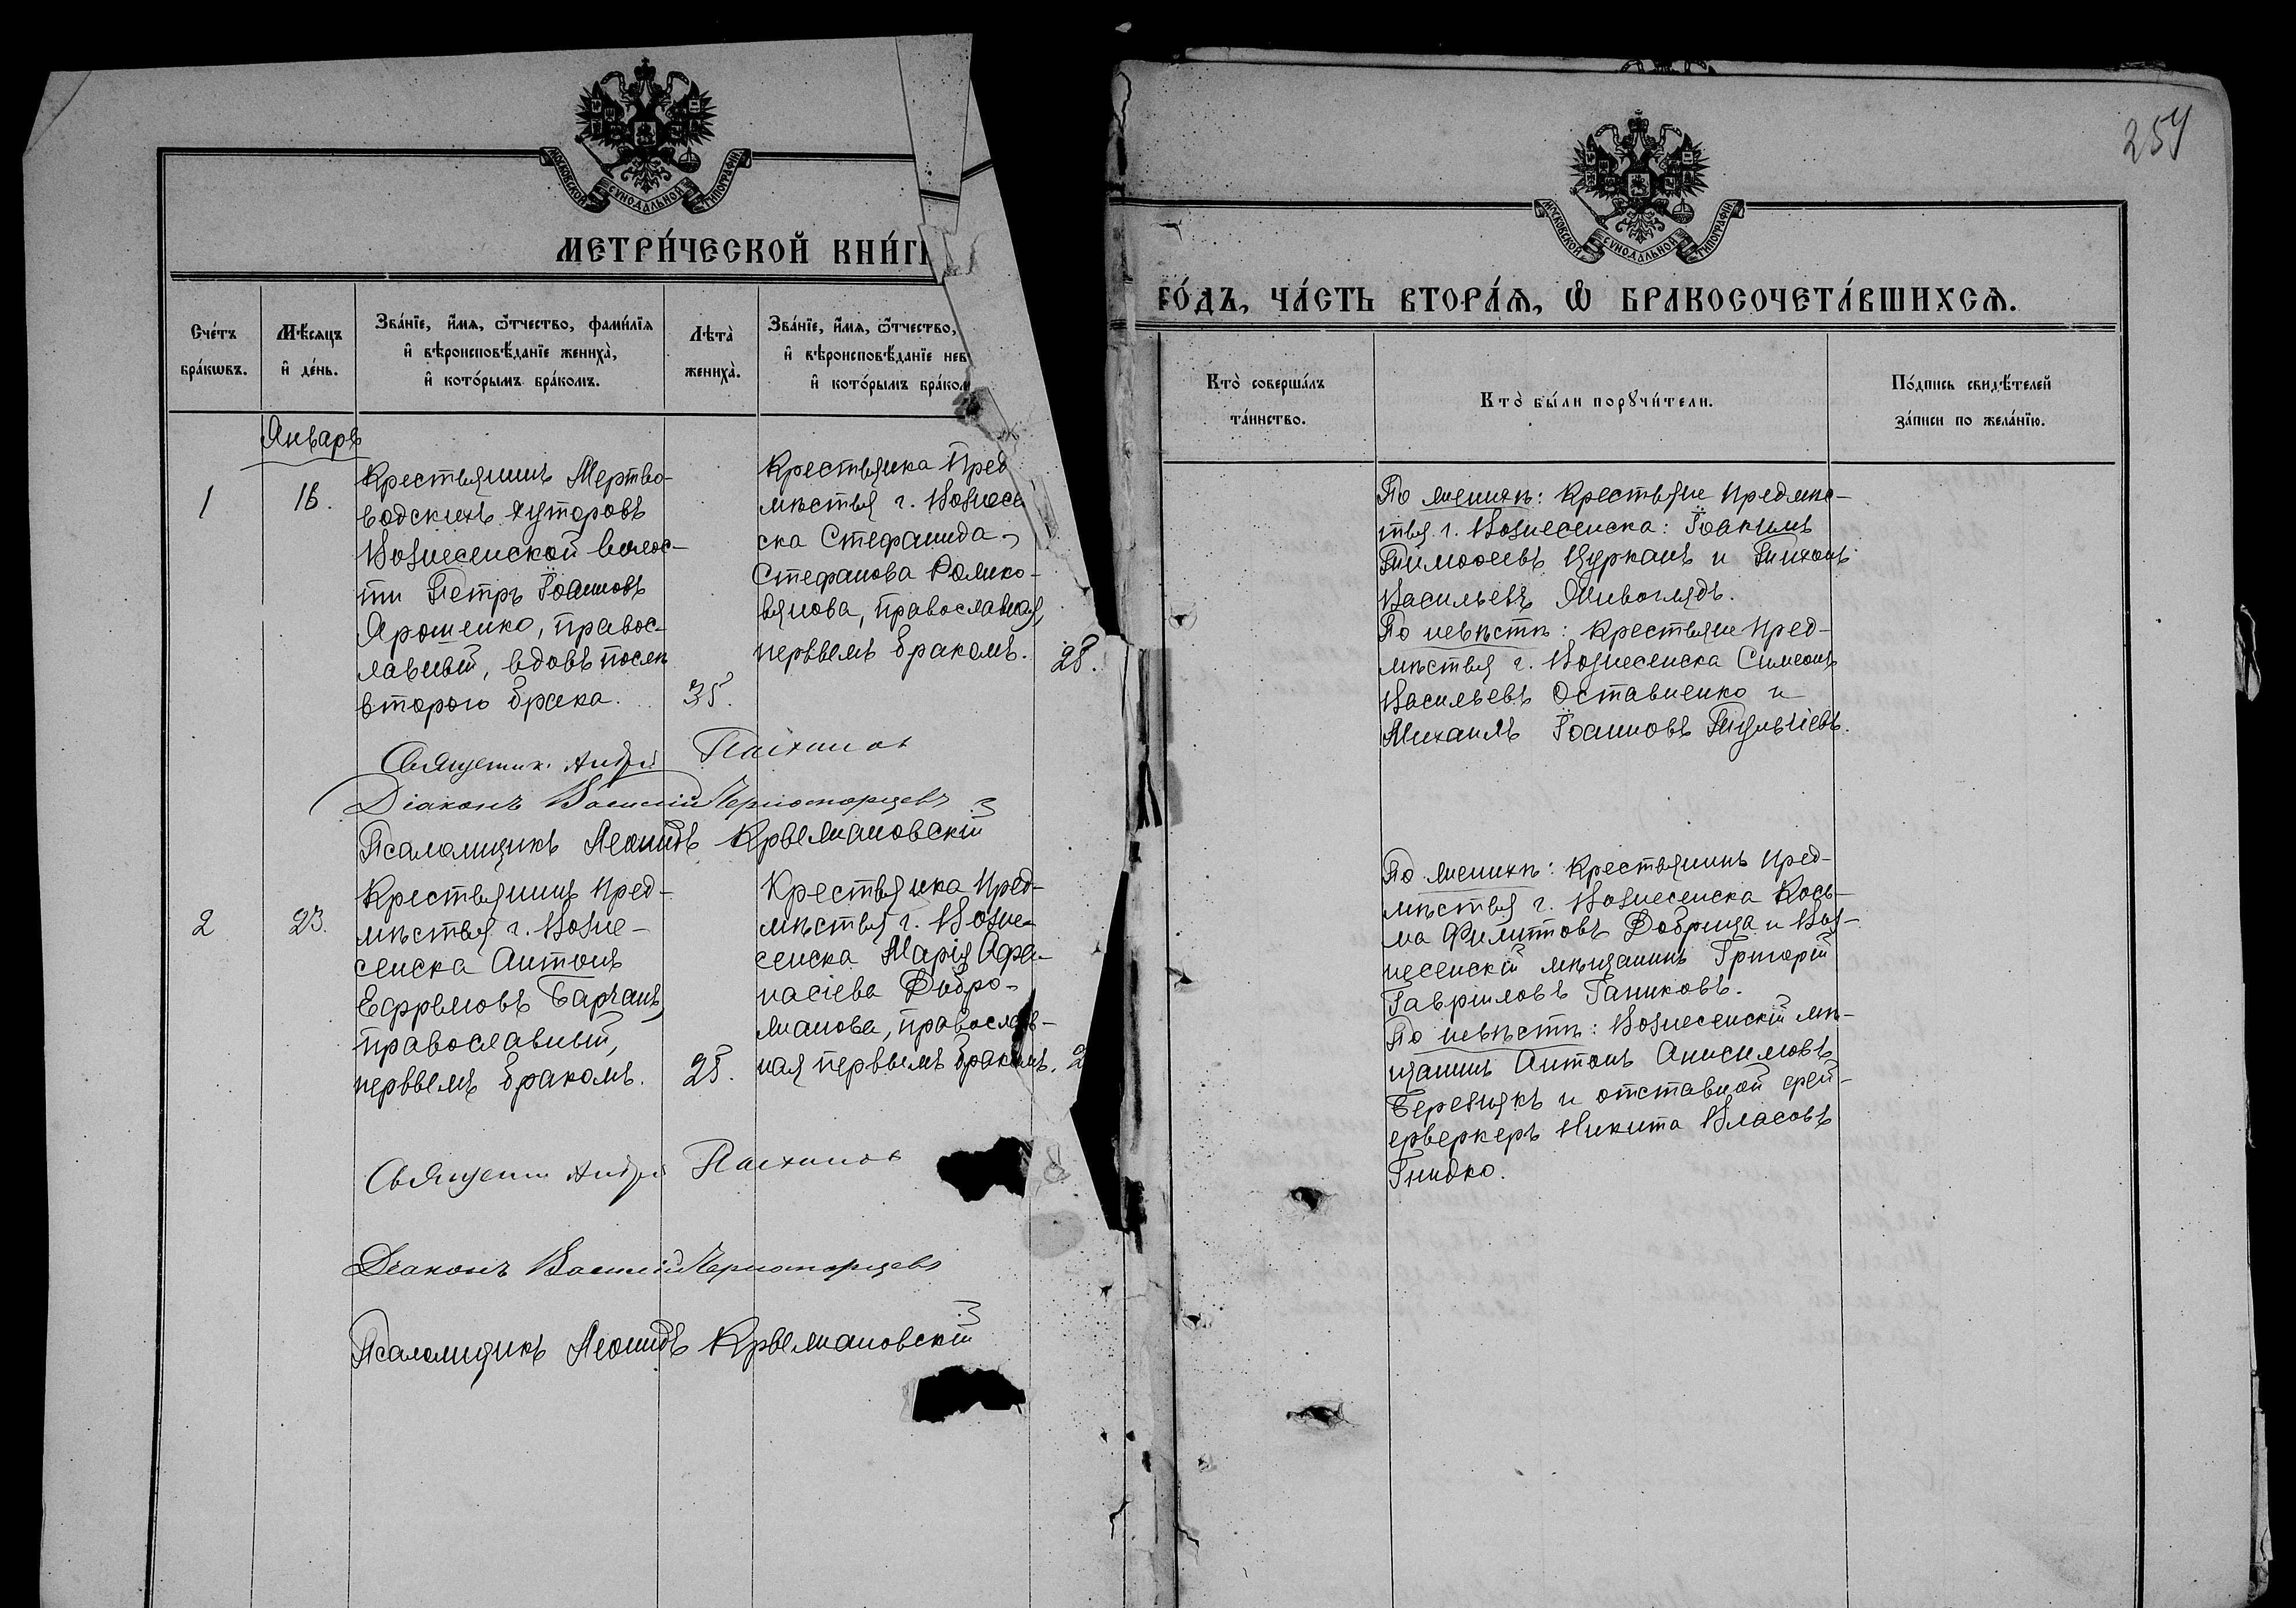 МОСКОВСКОЙ СѴНОДАЛЬНОЙ ТИПОГРАФІИ
МЕТРИ́ЧЕСКОЙ КНИ́ГИ
Сче́тъ
бра́кωвъ.
Мѣ́сяцъ
и҆ де́нь.
Зва́нїе, и҆́мя, ѻ҆́тчество, фами́лїя
и҆ вѣроисповѣ́данїе жениха̀,
и҆ кото́рымъ бра́комъ.
Лѣ́та̀
жениха̀.
Зва́нїе, и҆́мя, ѻ҆́тчество,
и҆ вѣроисповѣ́данїе нев
и҆ кото́рымъ бра́ком
Январь
1
16.
Крестьянинъ Мертво-
водскихъ хуторовъ
Вознесенской волос-
ти Петръ Іоанновъ
Ярошенко, правос-
лавный, вдовъ послѣ
второго брака.
35.
Крестьянка Пред
мѣстья г. Вознесе
ска Стефанида
Стефанова Романо-
вянова, православная,
первымъ бракомъ.
28.
Священник Андрей
Діаконъ Василій Черноморцевъ
Псаломщикъ Леонидъ Крыжановскій
2
23.
Крестьянинъ Пред-
мѣстья г. Возне-
сенска Антонъ
Ефремовъ Барчанъ,
православный,
первымъ бракомъ.
25.
Крестьянка Пред-
мѣстья г. Возне-
сенска Марія Афа-
насіева Добро-
жанова, православ-
ная первымъ бракомъ.
2
Священн Андрей
Діаконъ Василій Черноморцевъ
Псаломщикъ Леонидъ Крыжановскій
254
МОСКОВСКОЙ СѴНОДАЛЬНОЙ ТИПОГРАФІИ
ГО́ДЪ, ЧА́СТЬ ВТОРА́Я, Ѡ҆ БРАКОСОЧЕТА́ВШИХСЯ.
Кто̀ соверша́лъ
та́инство.
Кто̀ бы́ли порꙋчи́тели.
По́дпись свидѣ́телей
за́писи по жела́нїю.
По женихѣ: Крестьяне Предмѣс-
тья г. Вознесенска: Іоакимъ
Тимофеевъ Цурканъ и Тихонъ
Васильевъ Живоглядъ.
По невѣстѣ: Крестьяне Пред-
мѣстья г. Вознесенска Симеонъ
Васильевъ Оставненко и
Михаилъ Іоанновъ
По женихѣ: Крестьянинъ Пред-
мѣстья г. Вознесенска Кось-
ма Филипповъ Добрица и Воз-
несенскій мѣщанинъ Григорій
Гавриловъ Ганиковъ.
По невѣстѣ: Вознесенскій мѣ-
щанинъ Антонъ Анисимовъ
Березнякъ и отставной фей-
ерверкеръ Никита Власовъ
Гнидко.